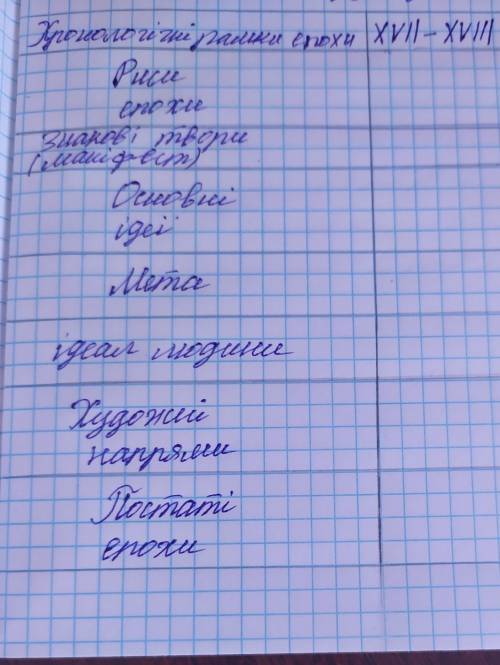 Хронологічні рамки епохи XVII - XVIII
Риси
епохи
знакові твори
(маніфест)
Основні
ідеї
Мета
ідеал людини
Художні
напрями
Постаті
епохи